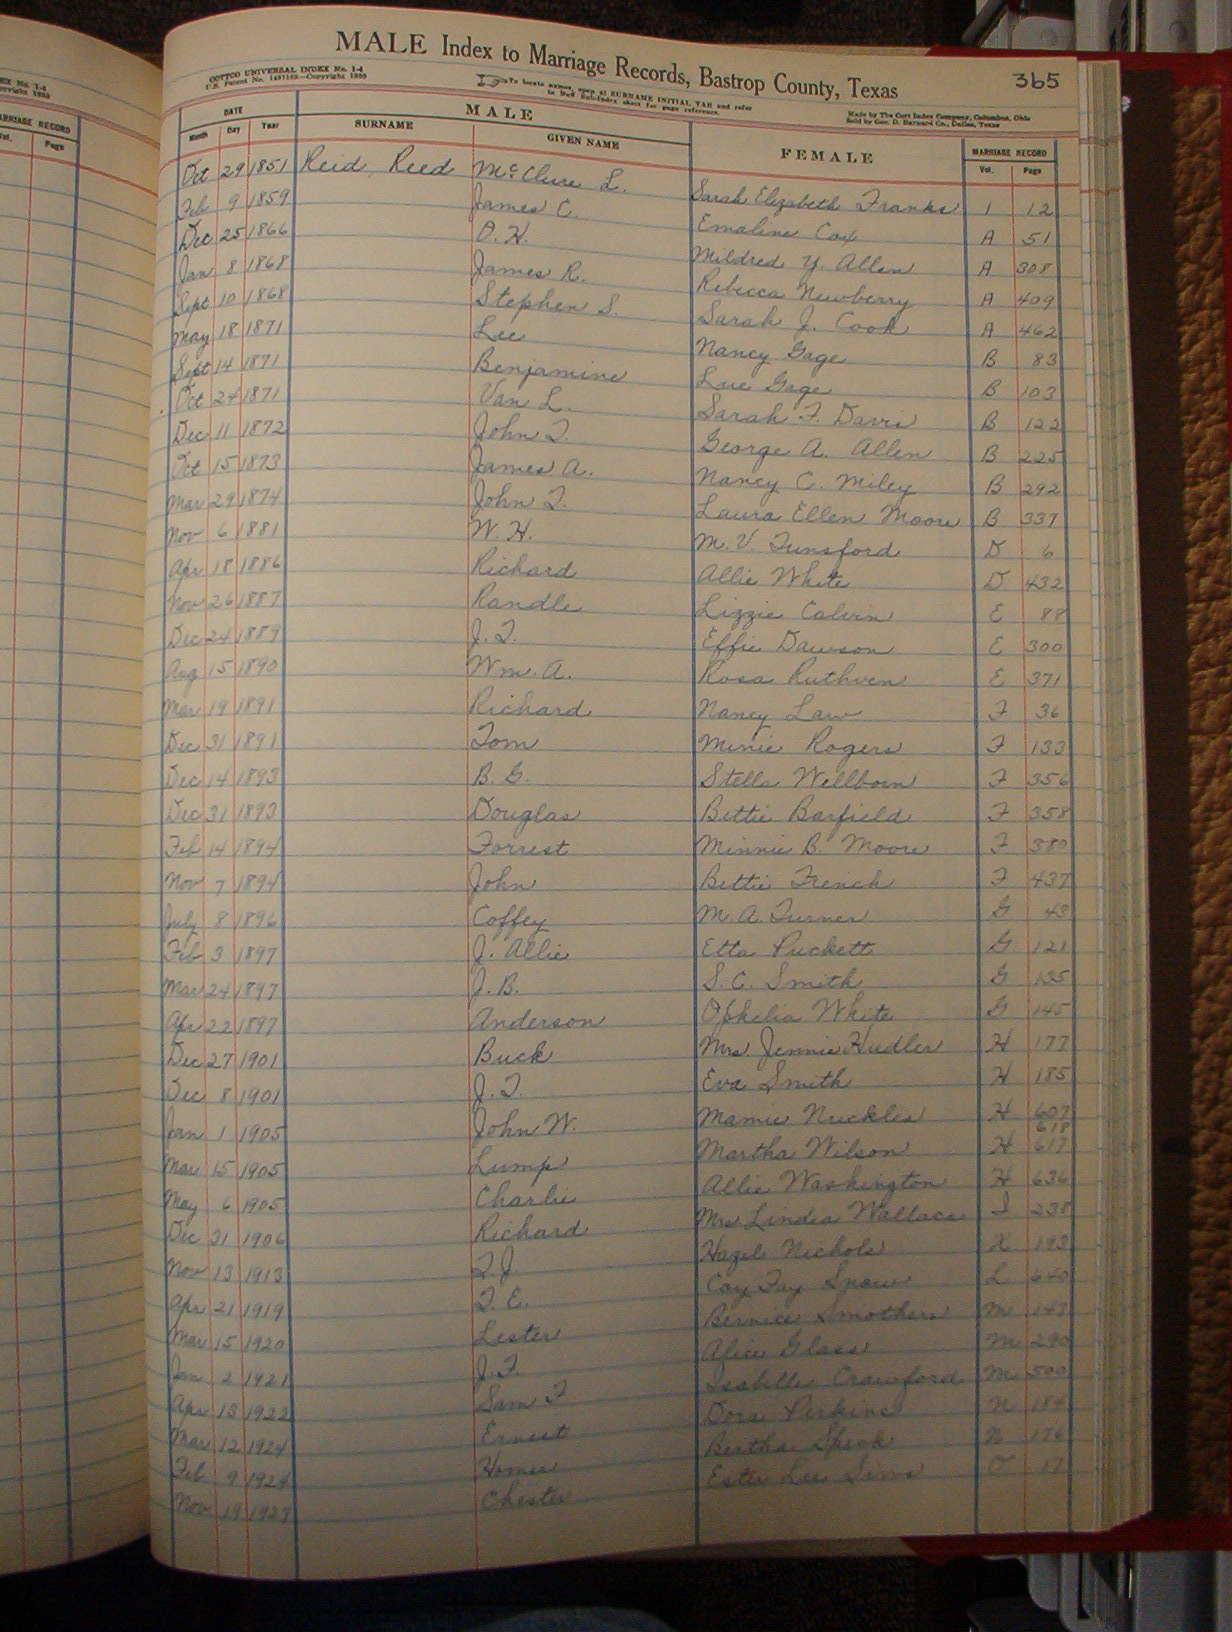 EX No. 1-4
pyright 1935
ARRIAGE RECORD
Vol. Page
MALE Index to Marriage Records, Bastrop County, Texas 365
COTTCO UNIVERSAL INDEX No. 1-4
U.S. Patent No. Copyright 1935
To locate names, open at SURNAME INITIAL TAB and refer
to Buff Sub-Index sheet for page reference.
Made by The Cott Index Company, Columbus, Ohio
Sold by Geo. D. Barnard Co., Dallas, Texas
DATE MALE FEMALE MARRIAGE RECORD
Month Day Year SURNAME GIVEN NAME Vol. Page
Oct 29 1851 Reid, Reed McClure L. Sarah Elizabeth Franks 1 12
Feb 9 1859 James C. Emaline Cox A 51
Dec 25 1866 O. H. Mildred Y. Allen A 308
Jan 8 1868 James R. Rebecca Newberry A 409
Sept 10 1868 Stephen S. Sarah J. Cook A 462
May 18 1871 Lee Nancy Gage B 83
Sept 14 1871 Benjamine Lue Gage B 103
Oct 24 1871 Van L. Sarah F. Davis B 122
Dec 11 1872 John T. George A. Allen B 225
Oct 15 1873 James A. Nancy C. Miley B 292
Mar 29 1874 John T. Laura Ellen Moore B 337
Nov 6 1881 W. H. M. V. Tunsford D 6
Apr 18 1886 Richard Allie White D 432
Nov 26 1887 Randle Lizzie Calvin E 88
Dec 24 1889 J. T. Effie Dawson E 300
Aug 15 1890 Wm. A. Rosa Ruthven E 371
Mar 19 1891 Richard Nancy Law F 36
Dec 31 1891 Tom Minie Rogers F 133
Dec 14 1893 B. G. Stella Wellborn F 356
Dec 31 1893 Douglas Bettie Barfield F 358
Feb 14 1894 Forrest Minnie B. Moore F 380
Nov 7 1894 John Bettie French F 437
July 8 1896 Coffey M. A. Turner G 43
Feb 3 1897 J. Allie Etta Puckett G 121
Mar 24 1897 J. B. S. C. Smith G 135
Apr 22 1897 Anderson Ophelia White G 145
Dec 27 1901 Buck Mrs Jennie Hudler H 177
Dec 8 1901 J. T. Eva Smith H 185
Jan 1 1905 John W. Mamie Nuckles H 607
618
Mar 15 1905 Lump Martha Wilson H 617
May 6 1905 Charlie Allie Washington H 636
Dec 31 1906 Richard Mrs Lindia Wallace I 238
Nov 13 1913 T. J. Hazel Nichols K 193
Apr 21 1919 T. E. Coy Fay Snow L 640
Mar 15 1920 Lester Bernice Smothers M 147
Jan 2 1921 J. F. Alice Glass M 290
Apr 13 1922 Sam F Isabelle Crawford M 500
Mar 12 1924 Ernest Dora Perkins N 184
Feb 9 1924 Homer Bertha Speck N 176
Nov 19 1928 Chester Ester Lee Sims O 17